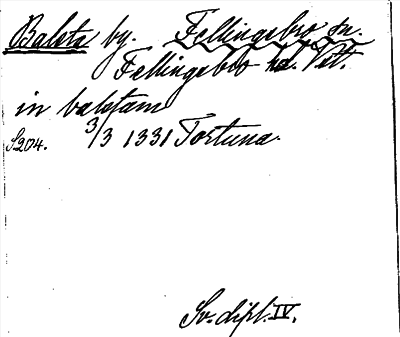 Balsta by. Fellingsbro sn.
Fellingsbro hd. Vstm.
in balstam
S204. 3/3 1331 Torstuna.
Sv. dipl. IV.